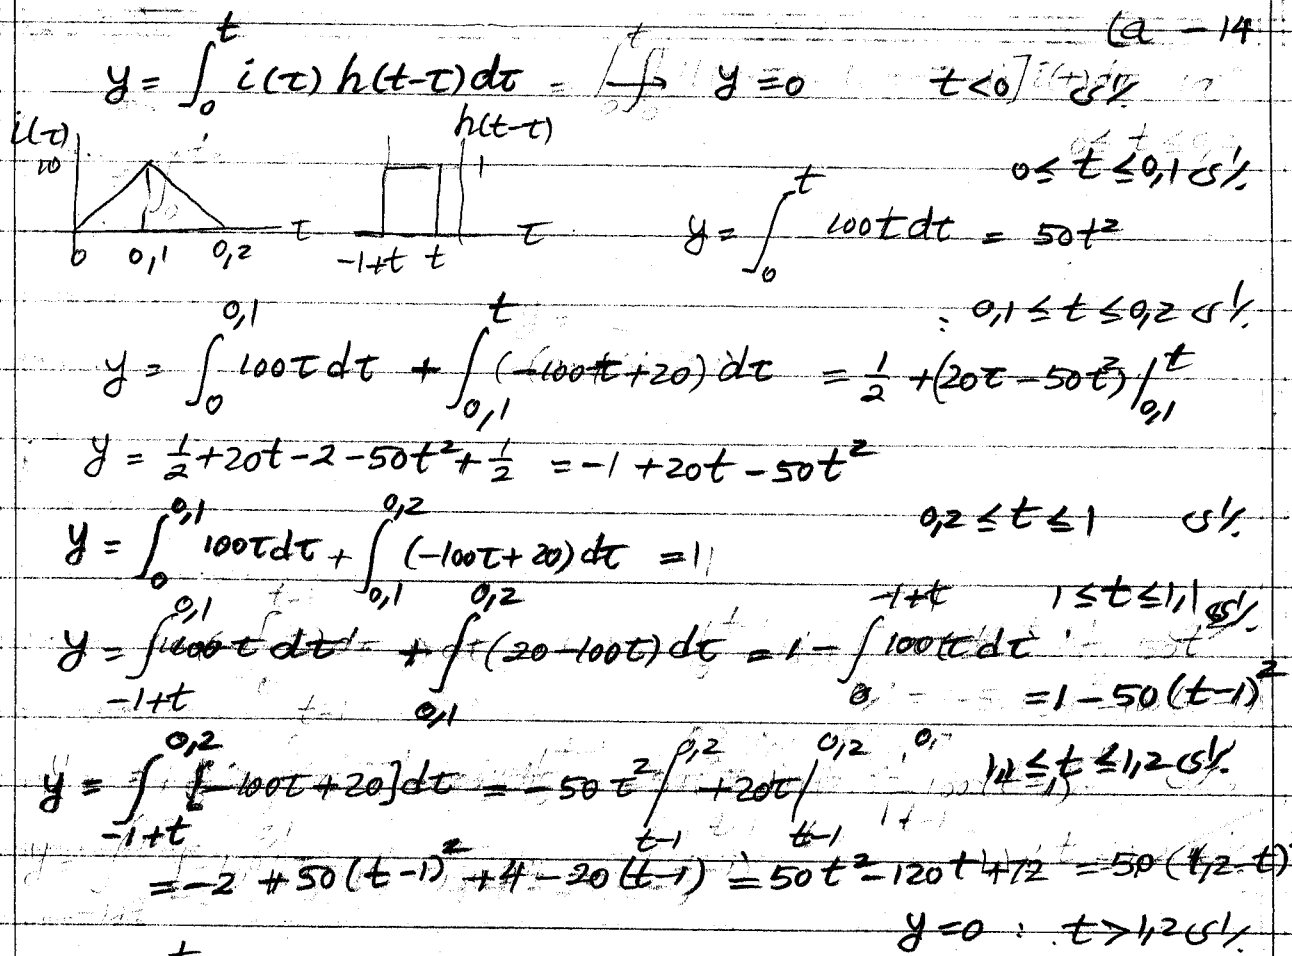 (a - 14
y = ∫₀ᵗ i(τ) h(t-τ) dτ = y = 0 t < 0
i(τ) 10 0 0,1 0,2 τ h(t-τ) 1 -1+t t τ
0 ≤ t ≤ 0,1
y = ∫₀ᵗ 100τ dτ = 50t²
: 0,1 ≤ t ≤ 0,2
y = ∫₀^0,1 100τ dτ + ∫_0,1^t (-100τ+20) dτ = 1/2 + (20τ - 50τ²) |_0,1^t
y = 1/2 + 20t - 2 - 50t² + 1/2 = -1 + 20t - 50t²
0,2 ≤ t ≤ 1
y = ∫₀^0,1 100τ dτ + ∫_0,1^0,2 (-100τ + 20) dτ = 1
1 ≤ t ≤ 1,1
y = ∫_-1+t^0,1 100τ dτ + ∫_0,1^0,2 (20-100τ) dτ = 1 - ∫₀^-1+t 100τ dτ
= 1 - 50(t-1)²
1,1 ≤ t ≤ 1,2
y = ∫_-1+t^0,2 [-100τ+20] dτ = -50τ² |_t-1^0,2 + 20τ |_t-1^0,2
= -2 + 50(t-1)² + 4 - 20(t-1) = 50t² - 120t + 72 = 50(1,2-t)
y = 0 : t > 1,2